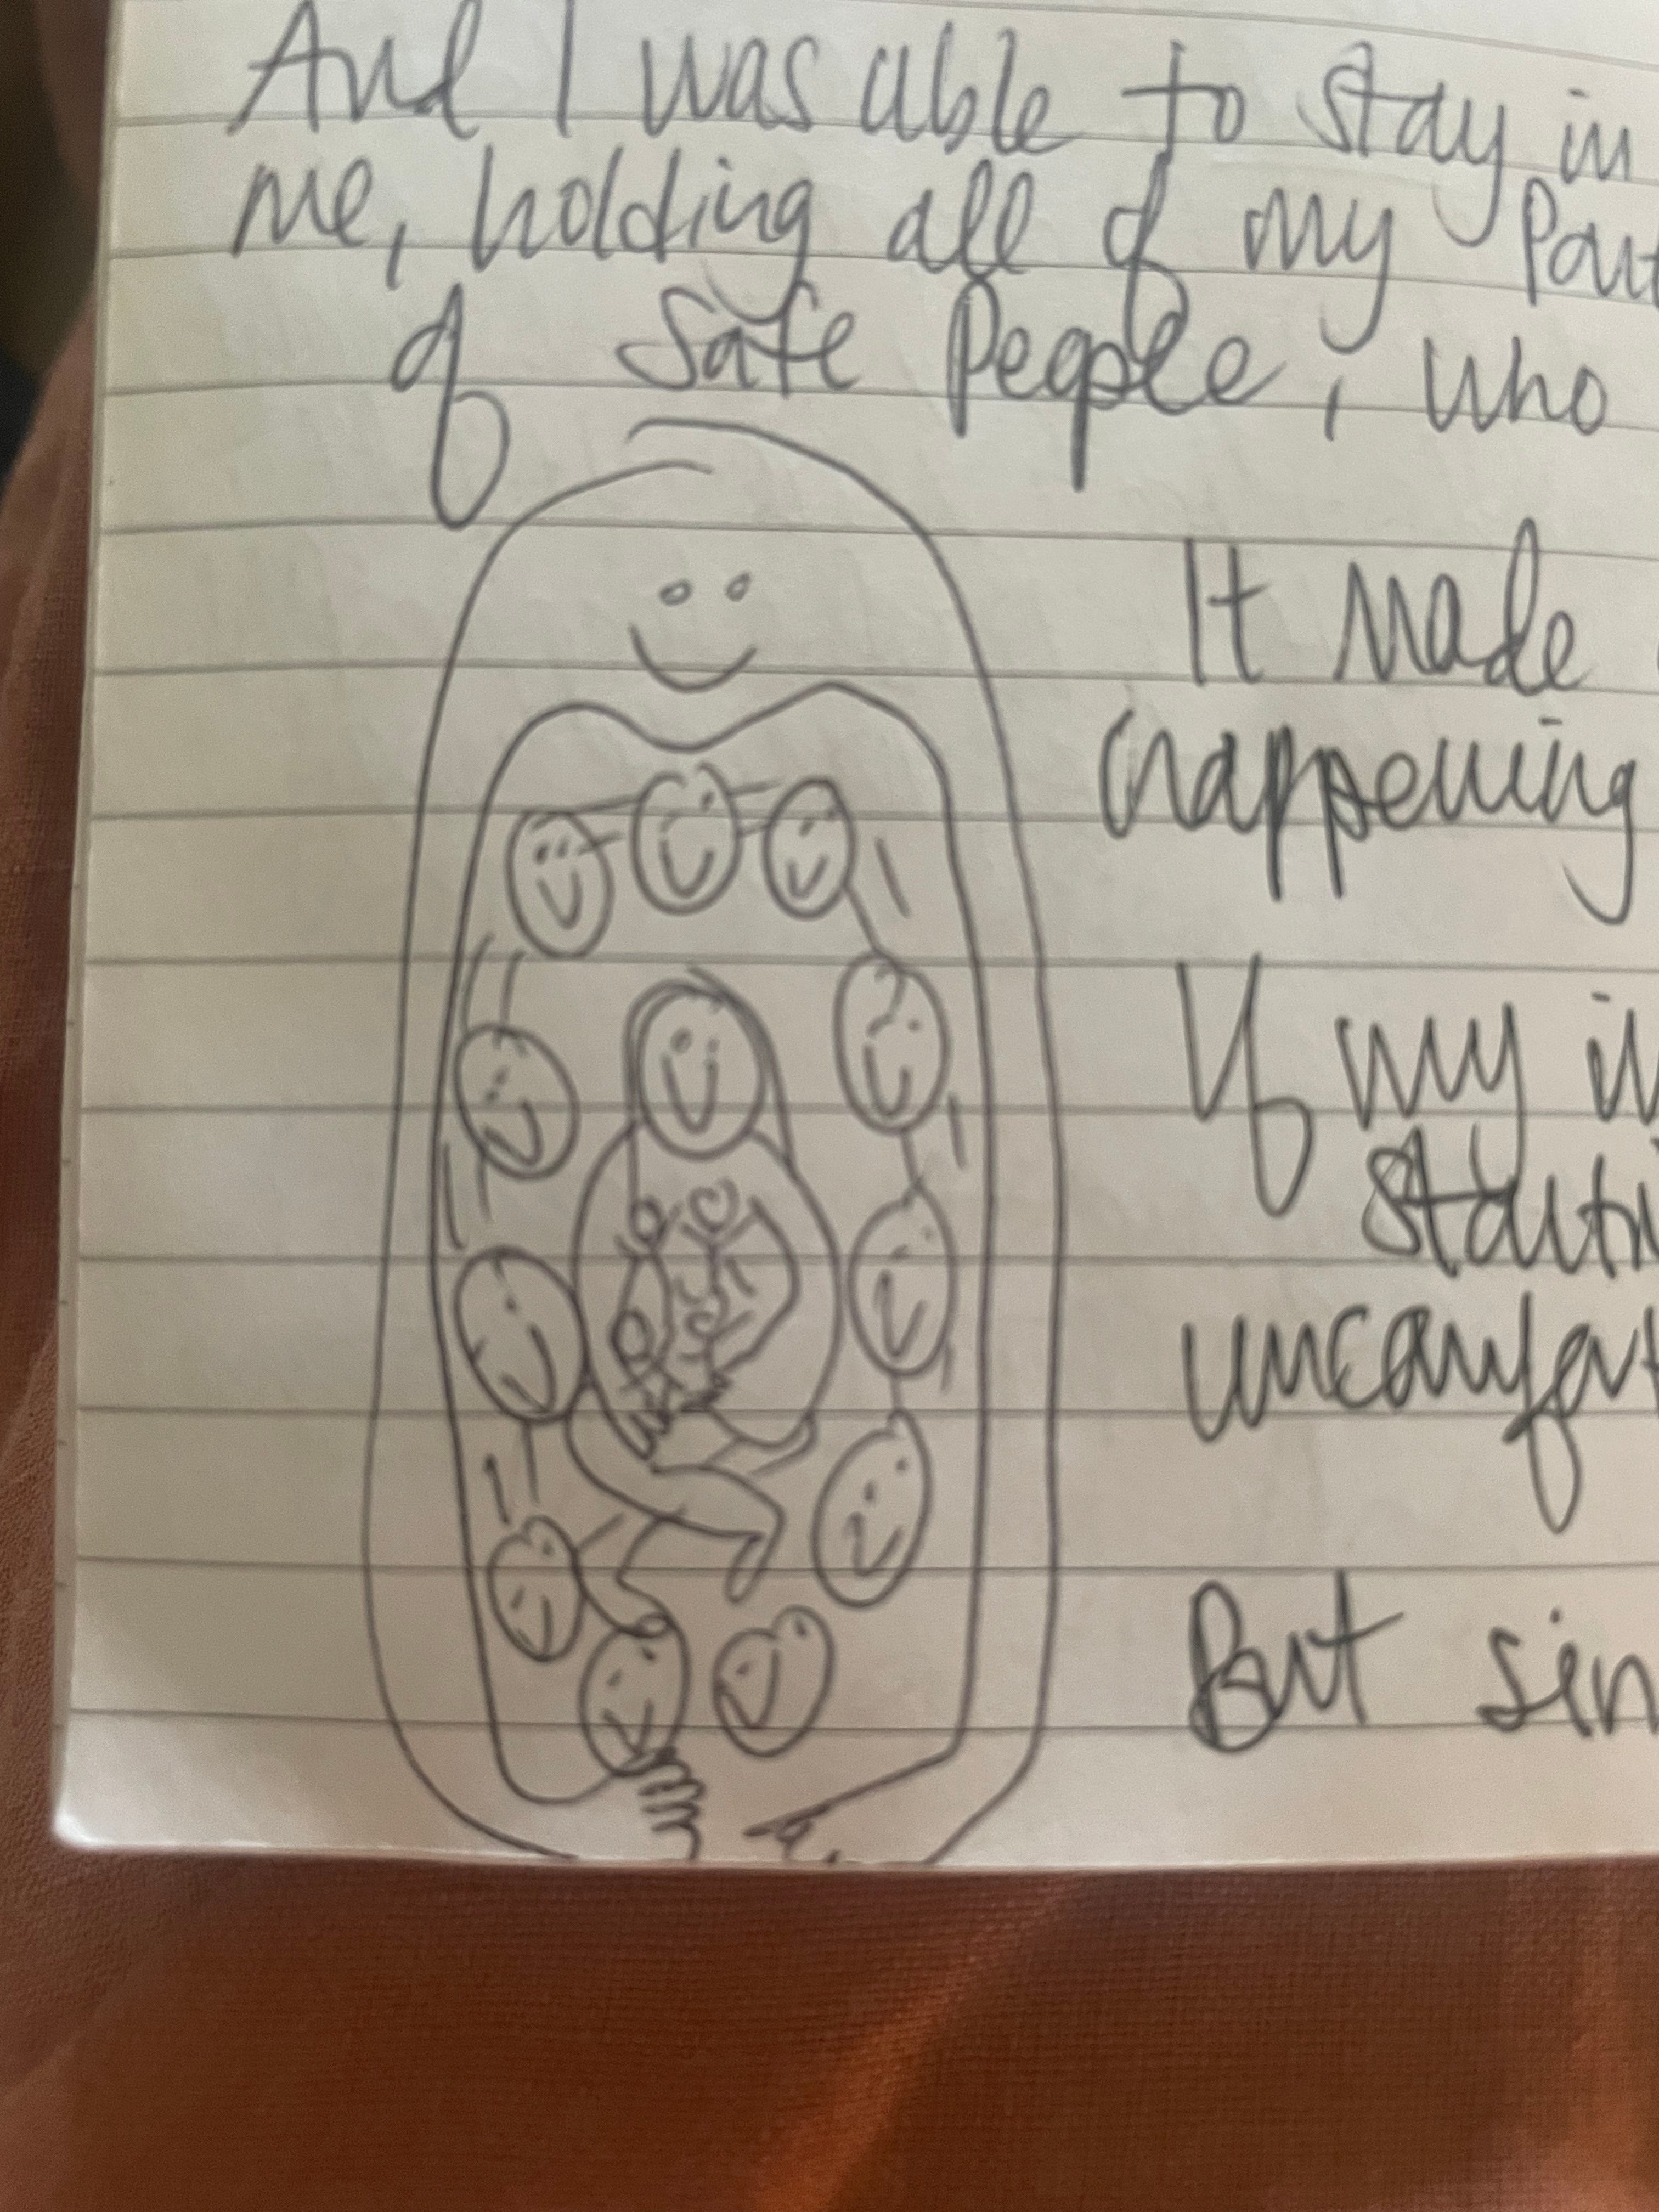 And I was able to stay in
me, holding all of my
of safe people, who
It made
happening
If my
uncomfort
But